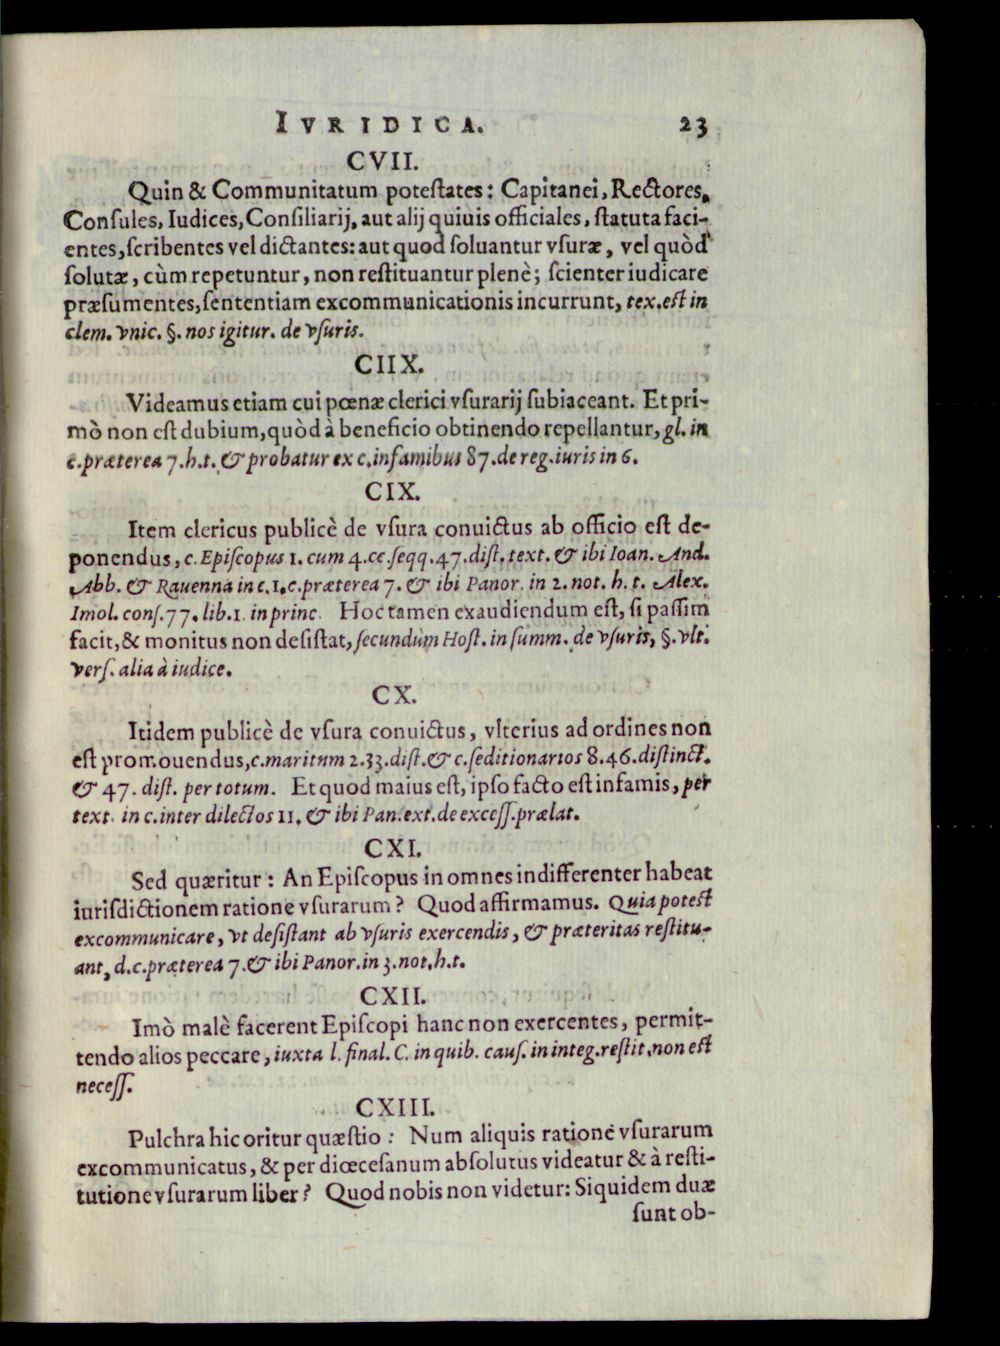 IVRIDICA. 23
CVII.
Quin & Communitatum poteſtates: Capitanei, Rectores,
Conſules, Iudices, Conſiliarij, aut alij quiuis officiales, ſtatuta faci-
entes, ſcribentes vel dictantes: aut quod ſoluantur vſuræ, vel quòd
ſolutæ, cùm repetuntur, non reſtituantur plenè; ſcienter iudicare
præſumentes, ſententiam excommunicationis incurrunt, tex. eſt in
clem. vnic. §. nos igitur. de vſuris.
CIIX.
Videamus etiam cui pœnæ clerici vſurarij ſubiaceant. Et pri-
mò non eſt dubium, quòd à beneficio obtinendo repellantur, gl. in
c. præterea 7. h. t. & probatur ex c. infamibus 87. de reg. iuris in 6.
CIX.
Item clericus publicè de vſura conuictus ab officio eſt de-
ponendus, c. Epiſcopus 1. cum 4. cc. ſeqq. 47. diſt. text. & ibi Ioan. And.
Abb. & Rauenna in c. 1. c. præterea 7. & ibi Panor. in 2. not. h. t. Alex.
Imol. conſ. 77. lib. 1. in princ. Hoc tamen exaudiendum eſt, ſi paſſim
facit, & monitus non deſiſtat, ſecundùm Hoſt. in ſumm. de vſuris, §. vlt.
verſ. alia à iudice.
CX.
Itidem publicè de vſura conuictus, vlterius ad ordines non
eſt promouendus, c. maritum 2. 33. diſt. & c. ſeditionarios 8. 46. diſtinct.
& 47. diſt. per totum. Et quod maius eſt, ipſo facto eſt infamis, per
text. in c. inter dilectos 11. & ibi Pan. ext. de exceſſ. prælat.
CXI.
Sed quæritur: An Epiſcopus in omnes indifferenter habeat
iurisdictionem ratione vſurarum? Quod affirmamus. Quia poteſt
excommunicare, vt deſiſtant ab vſuris exercendis, & præteritas reſtitu-
ant, d. c. præterea 7. & ibi Panor. in 3. not. h. t.
CXII.
Imò malè facerent Epiſcopi hanc non exercentes, permit-
tendo alios peccare, iuxta l. final. C. in quib. cauſ. in integ. reſtit. non eſt
neceſſ.
CXIII.
Pulchra hic oritur quæſtio: Num aliquis ratione vſurarum
excommunicatus, & per diœceſanum abſolutus videatur & à reſti-
tutione vſurarum liber? Quod nobis non videtur: Siquidem duæ
ſunt ob-